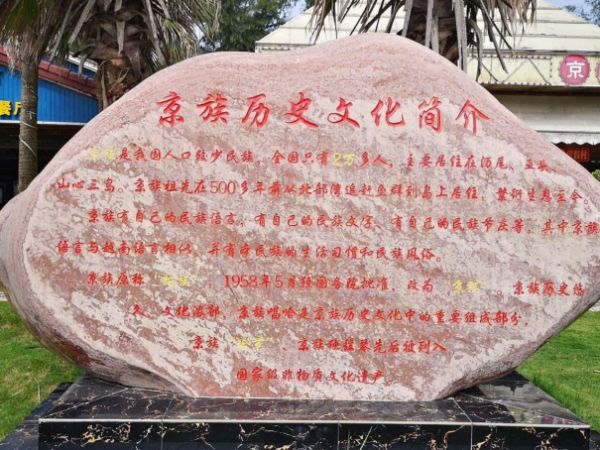 京族历史文化简介
京族是我国人口较少民族。全国只有2万多人，主要居住在沥尾、巫头、
山心三岛。京族祖先在500多年前从北部湾追赶鱼群到岛上居住，繁衍生息至今。
京族有自己的民族语言，有自己的民族文字，有自己的民族节庆等。其中京族
语言与越南语言相似，并有本民族的生活习惯和民族风俗。
京族原称 1958年5月经国务院批准，改为 京族历史悠
久，文化浓郁，京族唱哈是京族历史文化中的重要组成部分，
京族 京族 先后被列入
国家级非物质文化遗产。
京